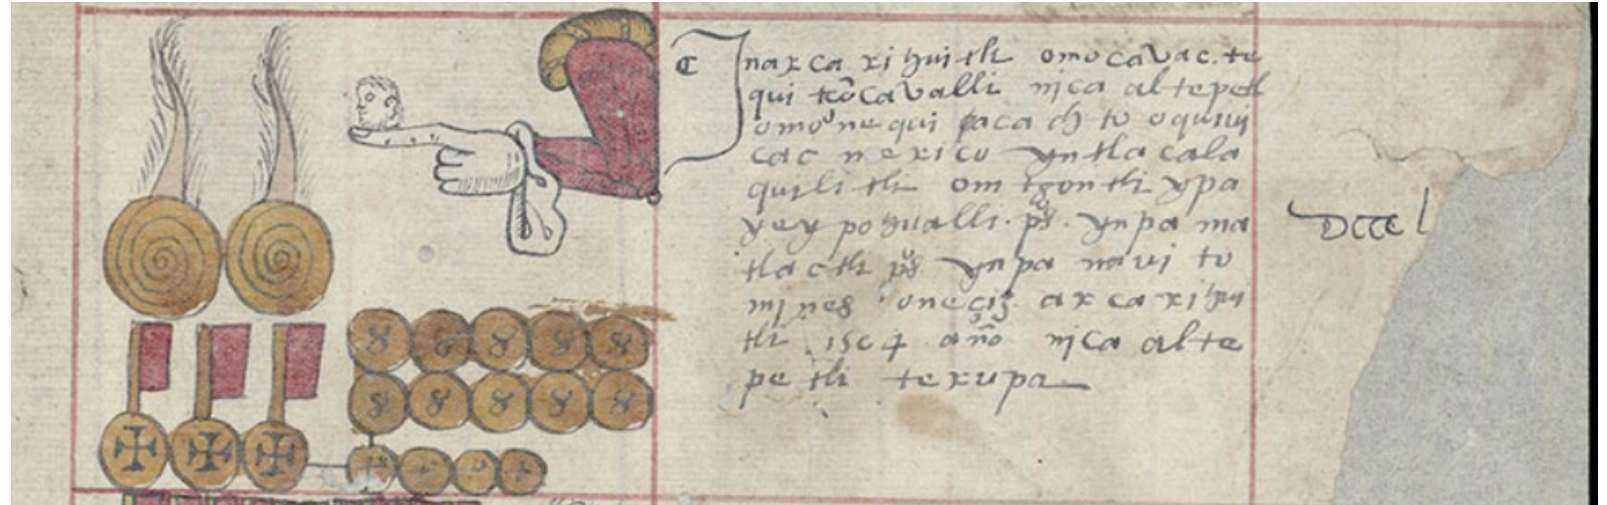 ¶ In axca xihuitli omocavac. te
qui tcōcavalli nica altepetl
omoᵒnequi
cac mexico yntlacala
quilitli om tzontli ypa
yey pohualli . p̄s . ynpa ma
tlactli p̄s ynpa navi to
mines onecis axcaxihui
tli 1564 año nica alte
petli texupa
dccc l